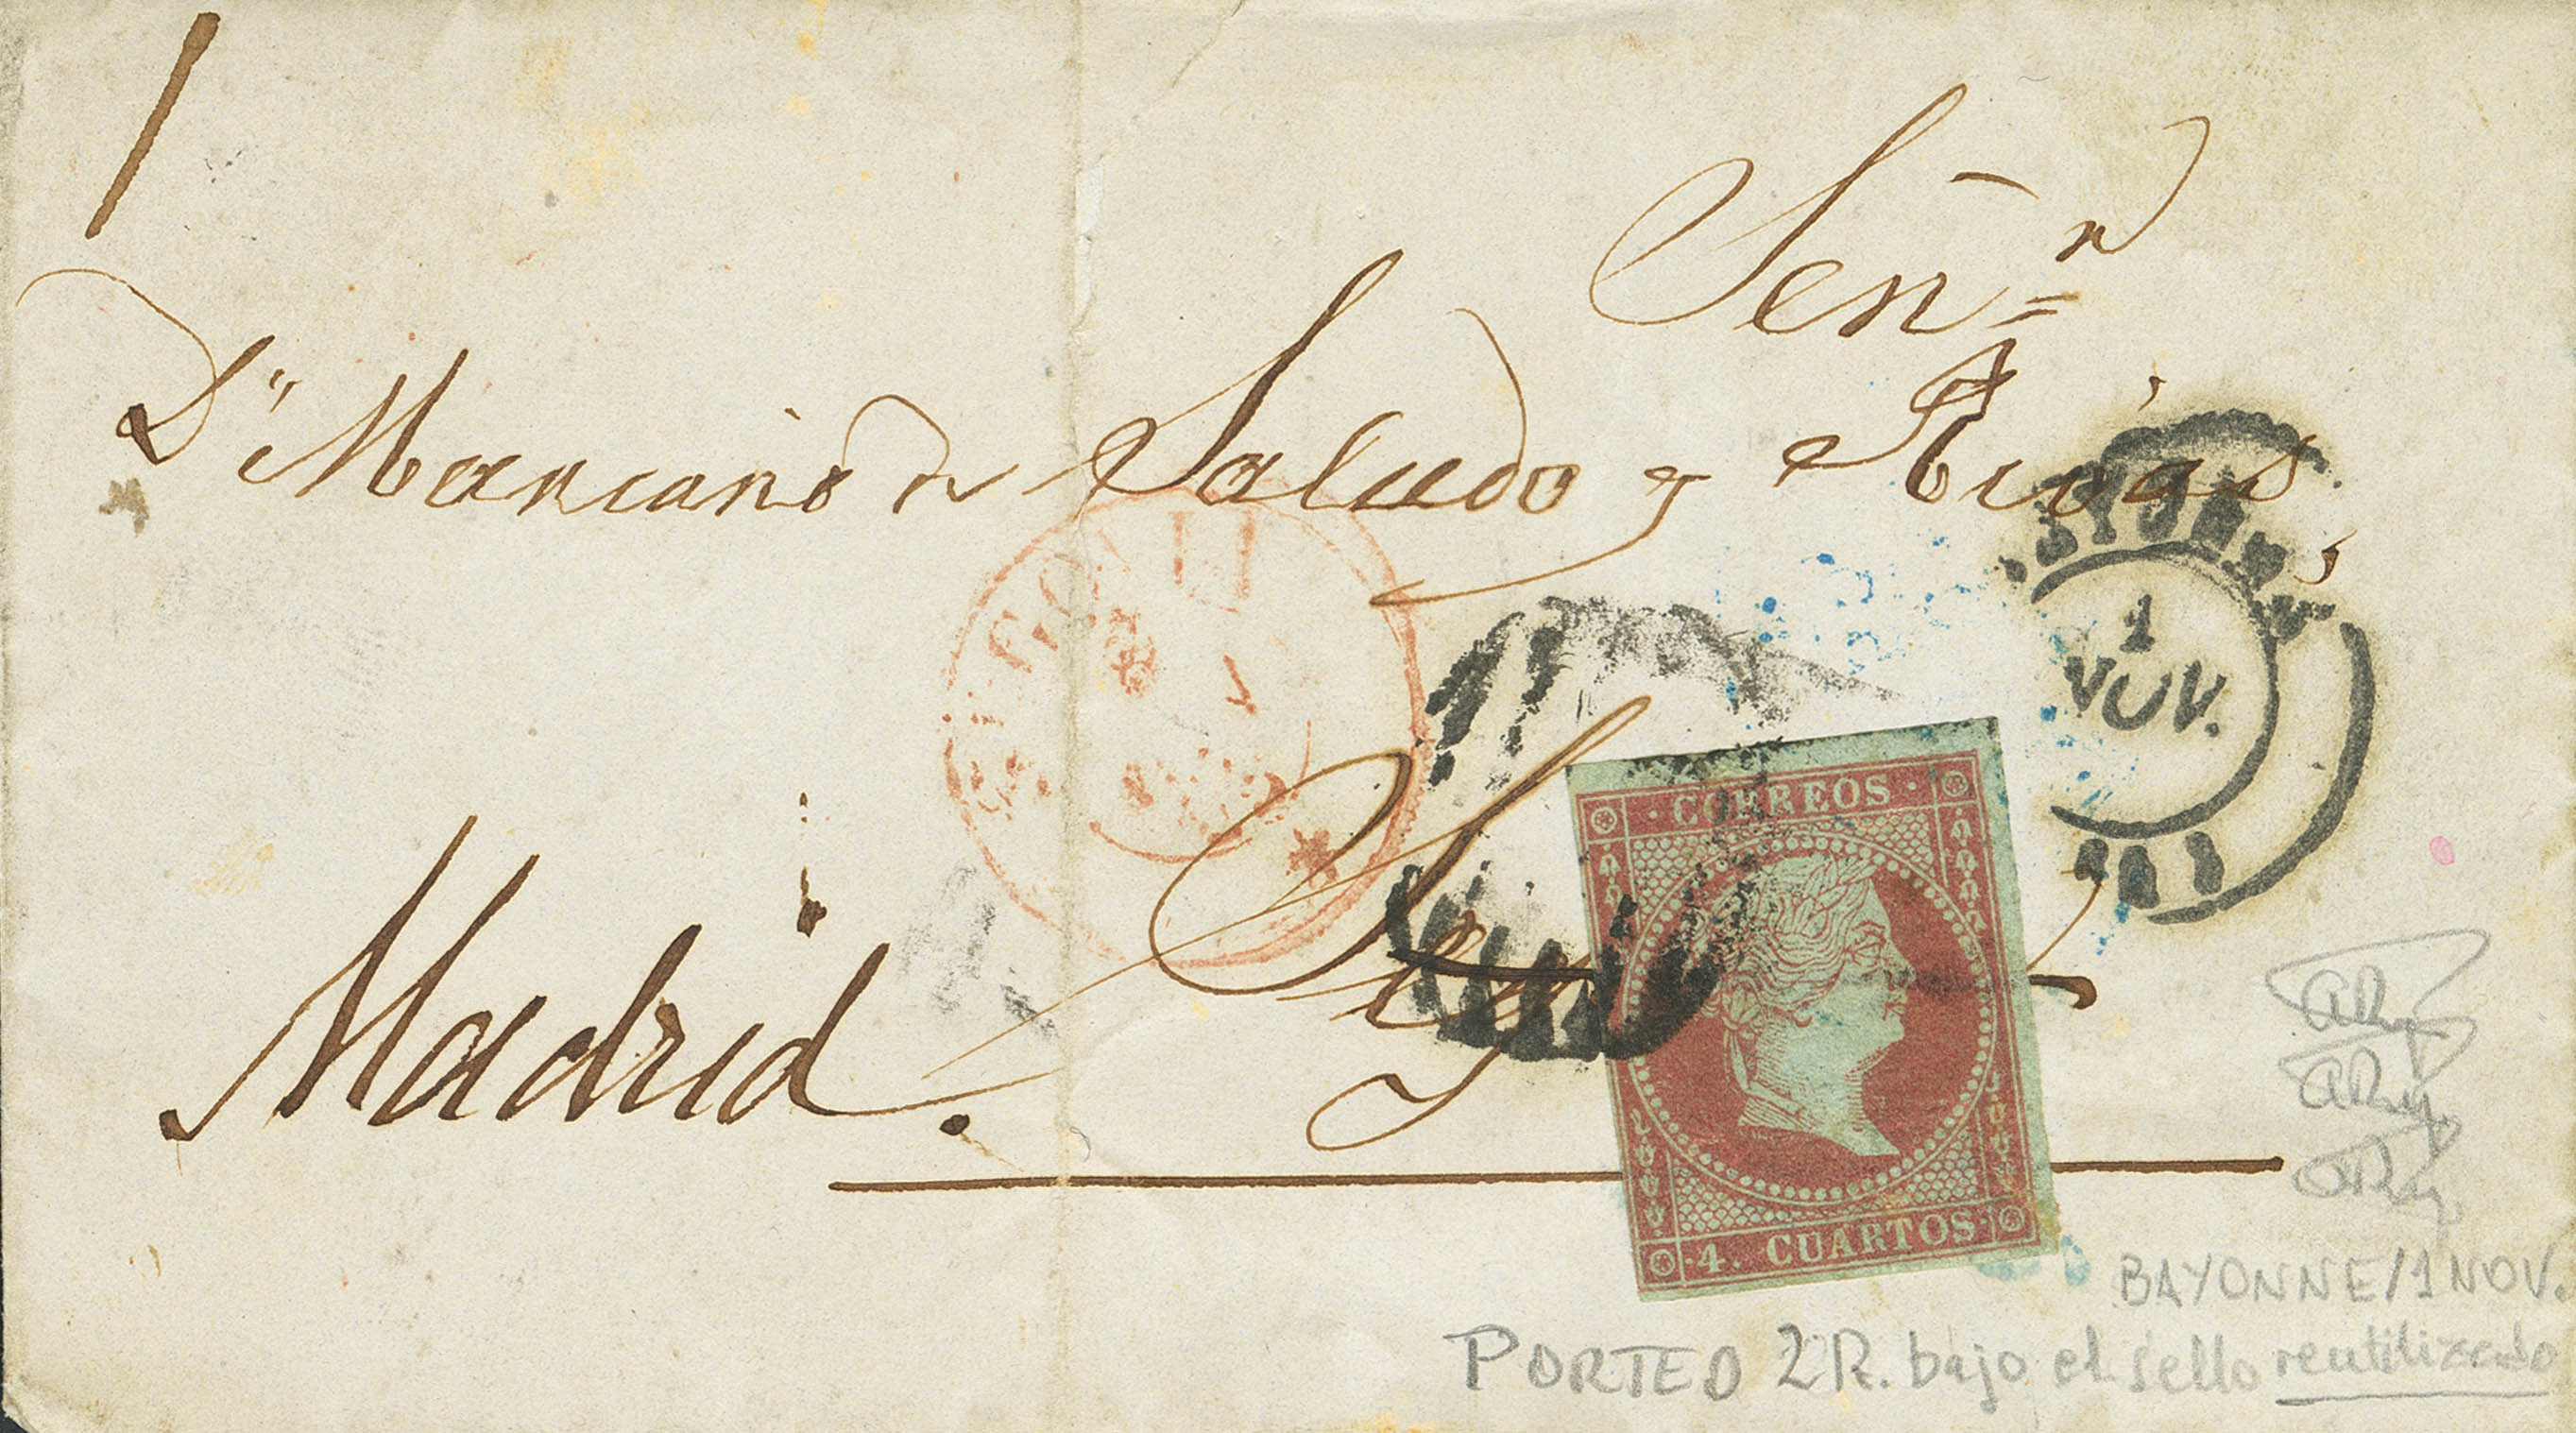 Señr
Dn Mariano de Saludo y Ríos,
1
NOV.
CORREOS
Madrid.
4. CUARTOS
BAYONNE/1 NOV.
PORTEO 2R. bajo el sello reutilizado